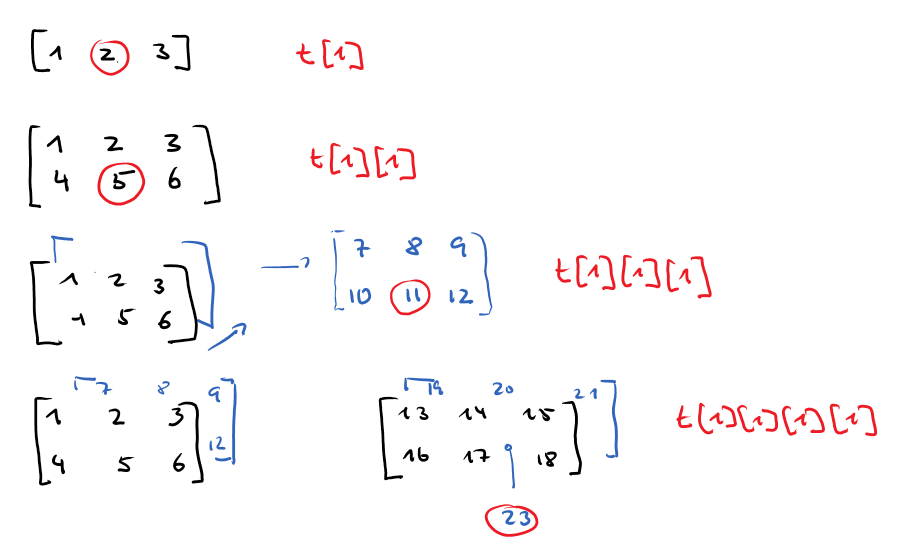 [1 2 3] t[1]
[1 2 3
4 5 6] t[1][1]
[1 2 3
4 5 6] → [7 8 9
10 11 12] t[1][1][1]
7 8 9
[1 2 3] 12
4 5 6
19 20 21
[13 14 15] t[1][1][1][1]
16 17 18
23